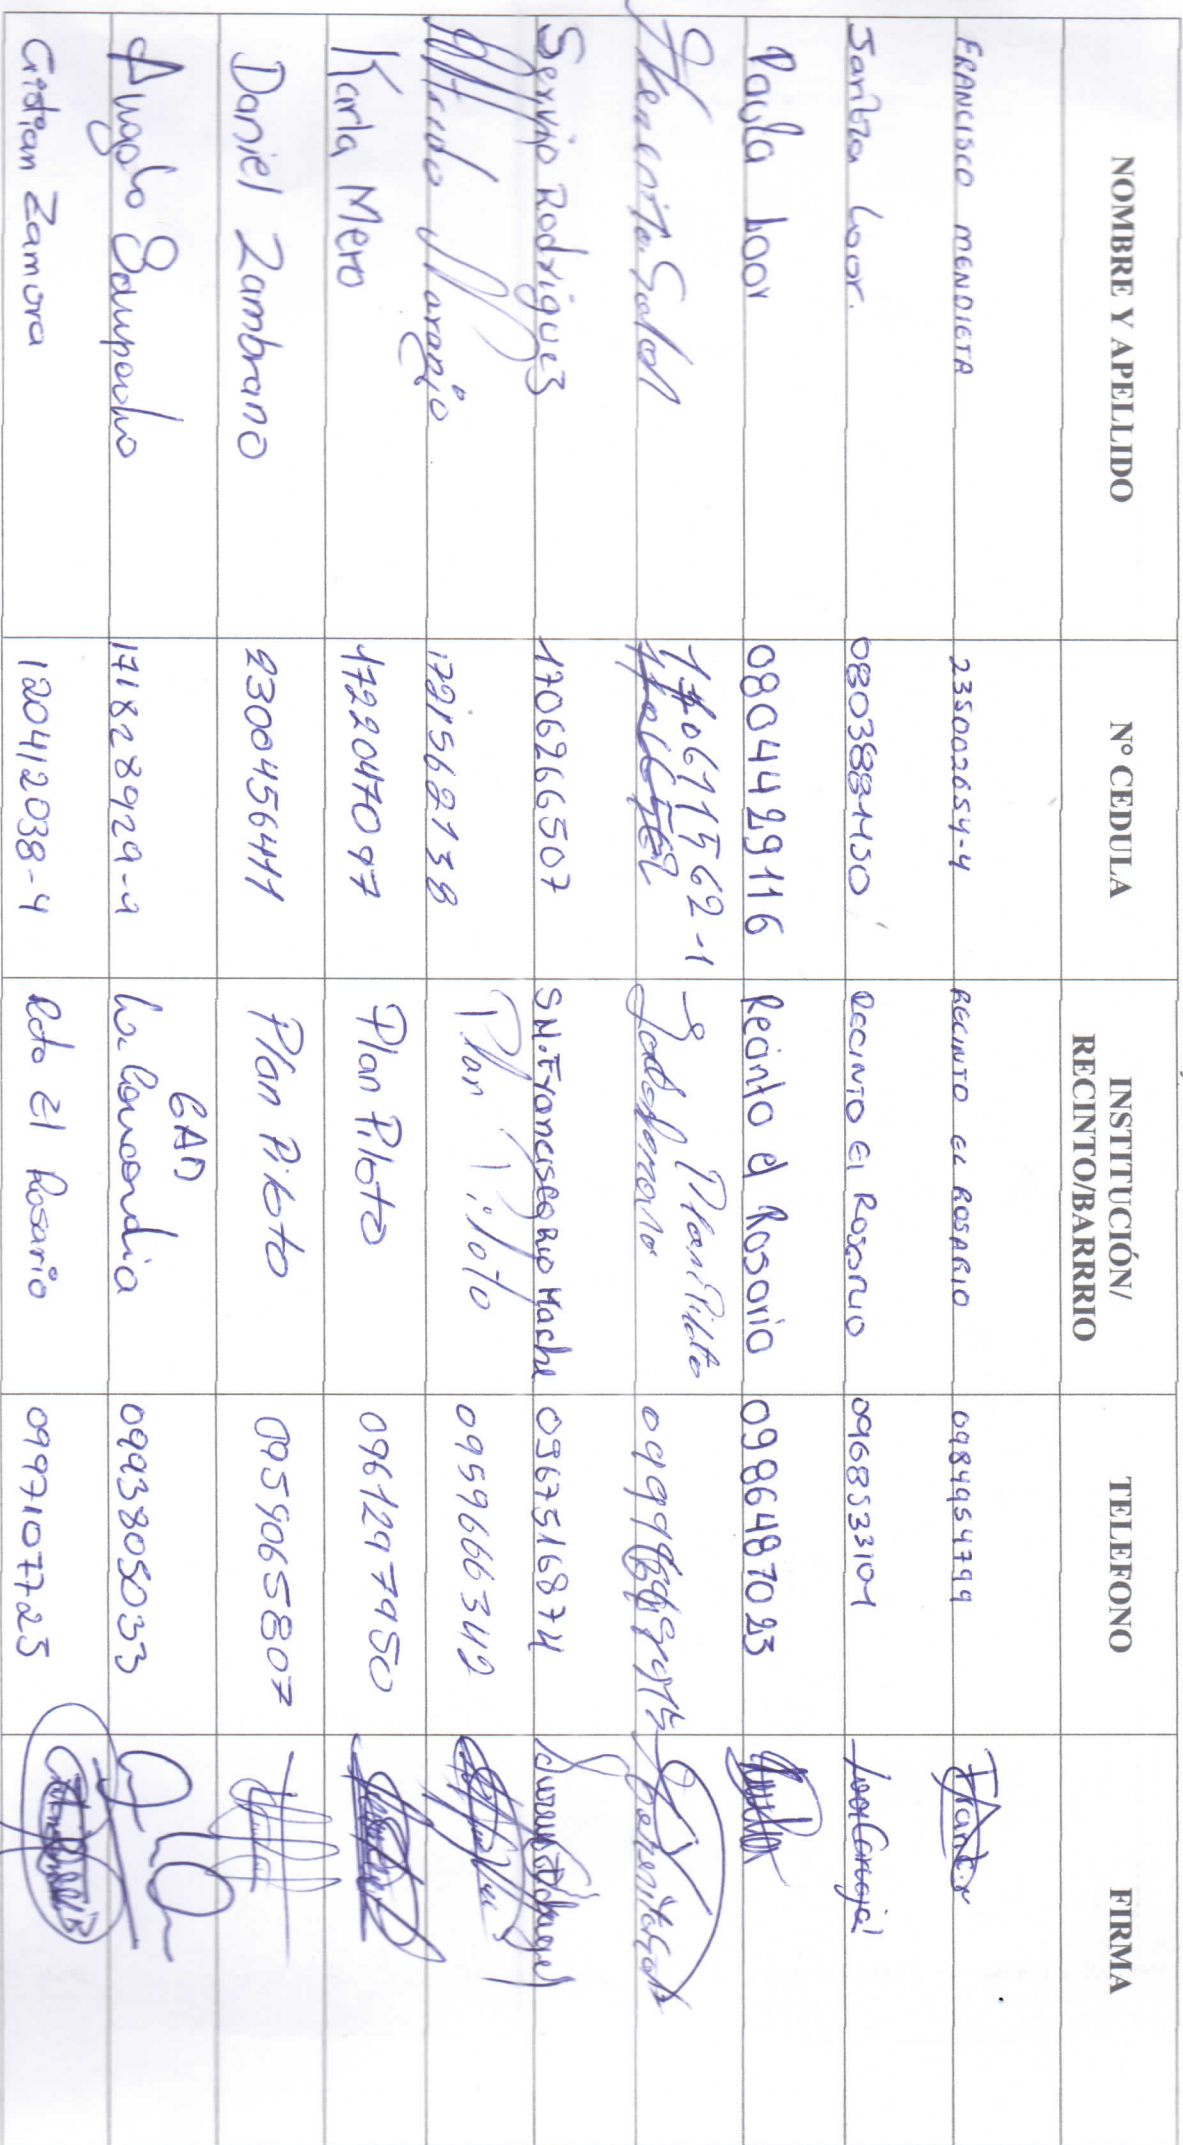 NOMBRE Y APELLIDO N° CEDULA INSTITUCIÓN/ RECINTO/BARRRIO TELEFONO FIRMA
FRANCISCO MENDIETA 235002654-4 RECINTO EL ROSARIO 0984954799
Saritza Loor. 0803881150 RECINTO El ROSARIO 0968533104
Paula Loor 0804429116 Recinto el Rosario 0986487023
170611562-1 Plan Piloto
Servio Rodriguez 1706266507 SN.Francisco Rio Mache 0967516874
Alfredo Naranjo 1721562138 Plan Piloto 0959666342
Karla Mero 1722047097 Plan Piloto 0961297950
Daniel Zambrano 2300456411 Plan Piloto 0959065807
GAD
171828929-9 La Concordia 0993805033
Cristian Zamora 120412038-4 Rcto El Rosario 0997107725